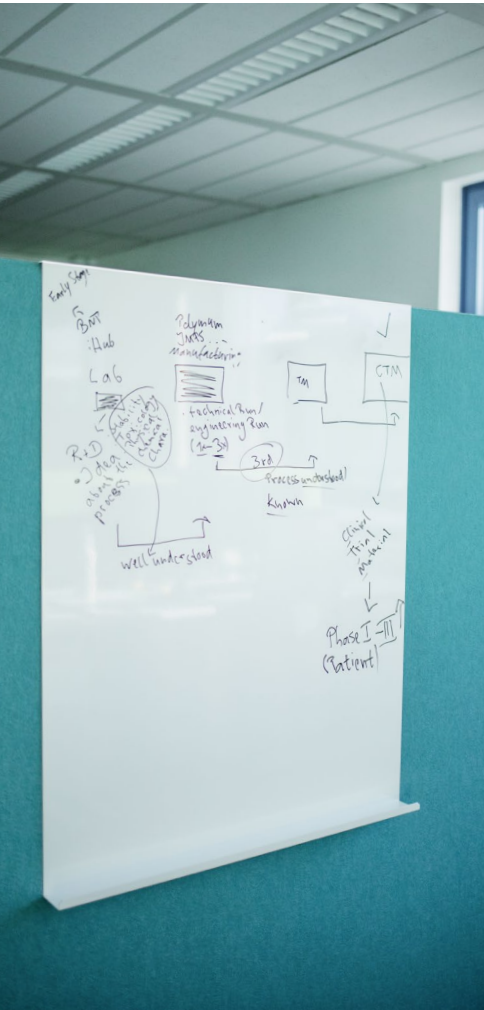 Early Stage
BNT
Hub
Lab
R+D
• Idea
about the
process
Stability
Toxicology
physical
chemical
chara
well understood
Polymun
JMPS
manufacturing
• technical Run/
engineering Run
(1x-3x)
3rd
Process understood/
Known
TM
CTM
Clinical
Trial
Material
Phase I-III
(Patient)